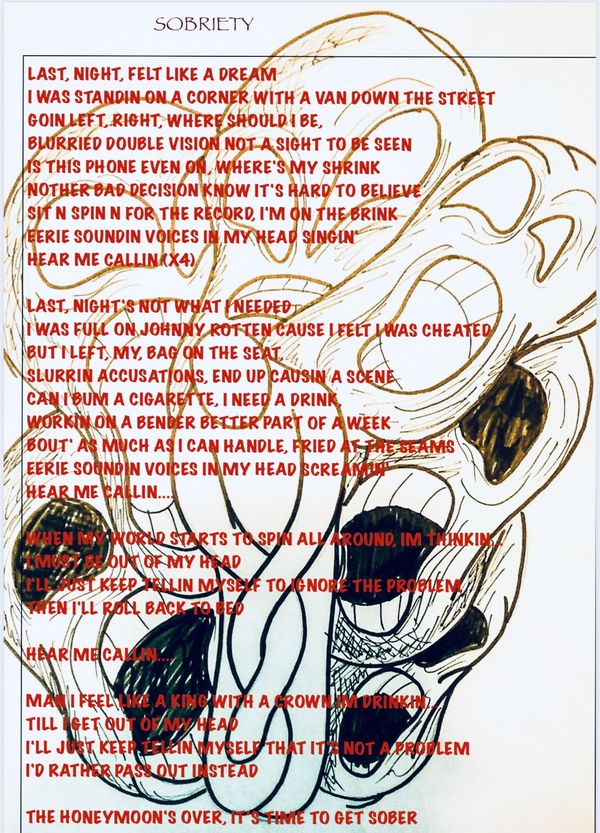 SOBRIETY
LAST, NIGHT, FELT LIKE A DREAM
I WAS STANDIN ON A CORNER WITH A VAN DOWN THE STREET
GOIN LEFT, RIGHT, WHERE SHOULD I BE,
BLURRIED DOUBLE VISION NOT A SIGHT TO BE SEEN
IS THIS PHONE EVEN ON, WHERE'S MY SHRINK
NOTHER BAD DECISION KNOW IT'S HARD TO BELIEVE
SIT N SPIN N FOR THE RECORD, I'M ON THE BRINK
EERIE SOUNDIN VOICES IN MY HEAD SINGIN'
HEAR ME CALLIN (X4)
LAST, NIGHT'S NOT WHAT I NEEDED
I WAS FULL ON JOHNNY ROTTEN CAUSE I FELT I WAS CHEATED
BUT I LEFT, MY, BAG ON THE SEAT,
SLURRIN ACCUSATIONS, END UP CAUSIN A SCENE
CAN I BUM A CIGARETTE, I NEED A DRINK
WORKIN ON A BENDER BETTER PART OF A WEEK
BOUT' AS MUCH AS I CAN HANDLE, FRIED AT THE SEAMS
EERIE SOUNDIN VOICES IN MY HEAD SCREAMIN'
HEAR ME CALLIN....
WHEN MY WORLD STARTS TO SPIN ALL AROUND, IM THINKIN...
I MUST BE OUT OF MY HEAD
I'LL JUST KEEP TELLIN MYSELF TO IGNORE THE PROBLEM
THEN I'LL ROLL BACK TO BED
HEAR ME CALLIN....
MAN I FEEL LIKE A KING WITH A CROWN IM DRINKIN...
TILL I GET OUT OF MY HEAD
I'LL JUST KEEP TELLIN MYSELF THAT IT'S NOT A PROBLEM
I'D RATHER PASS OUT INSTEAD
THE HONEYMOON'S OVER, IT'S TIME TO GET SOBER